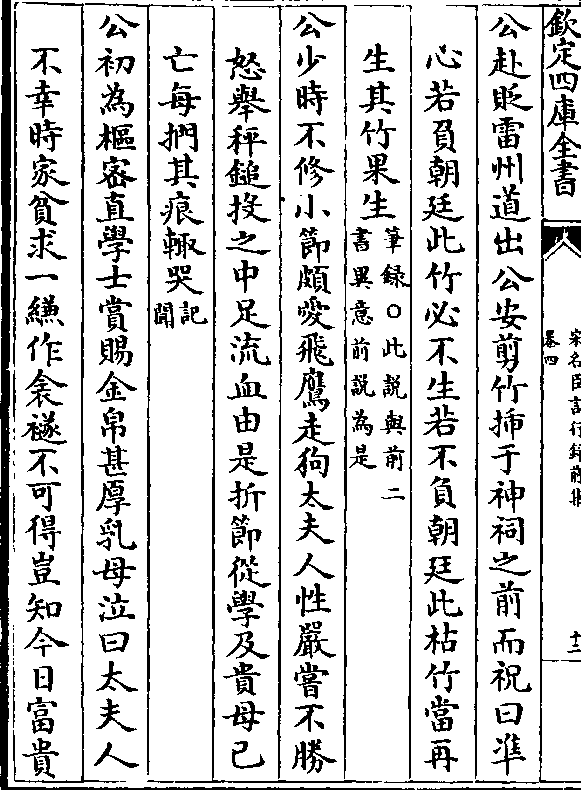 欽定四庫全書
宋名臣言行錄前集
卷四
十三
公赴貶雷州道出公安剪竹揷于神祠之前而祝曰準
心若負朝廷此竹必不生若不負朝廷此枯竹當再
生其竹果生
筆録○此説與前二
書異意前説為是
公少時不修小節頗愛飛鷹走狗太夫人性嚴嘗不勝
怒舉秤鎚投之中足流血由是折節從學及貴母已
亡每捫其痕輙哭
記
聞
公初為樞宻直學士賞賜金帛甚厚乳母泣曰太夫人
不幸時家貧求一縑作衾襚不可得豈知今日富貴